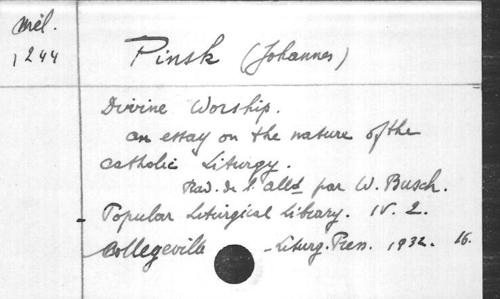 Mél.
1244
Pinsk (Johannes)
Divine Worship.
an essay on the nature of the
catholic Liturgy.
Trad. de l'alld par W. Busch.
- Popular Liturgical Library. IV. 2.
Collegeville - Liturg. Press. 1932. 16.